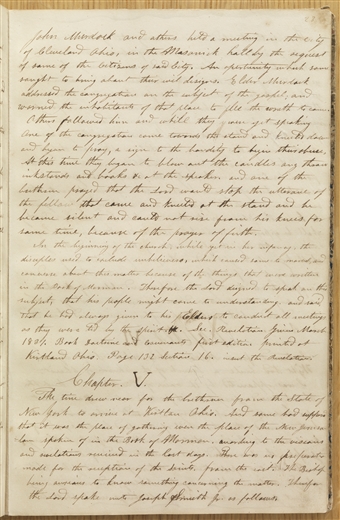 John Murdock and others held a meeting in the city
of Cleveland Ohio, in the Masonick hall by the request
of some of the citizens of said city. An opertunity which some
sought to bring about their evil designs. Elder Murdock
addressed the congregation on the subject of the gospel, and
warned the inhabitants of that place to flee the wrath to come
Others followed him and while they were yet speaking
One of the congregation came towards the stand and kneeled down
and began to pray, a sign to the banditty to begin their abuse.
At this time they began to blow out the candles and throw
inkstands and books &c at the speaker and one of the
brethren prayed that the Lord would stop the utterance of
the fellow that came and kneeled at the stand and he
became silent and could not rise from his knees for
some time, because of the prayer of faith.
In the beginning of the church, while yet in her infancy, the
disciples used to exclude unbelievers, which caused some to marvel, and
converse about this matter because of the things that were written
in the Book of Mormon. Therefore the Lord deigned to speak on this
subject, that his people might come to understanding, and said
that he had always given to his Elders to conduct all meetings
as they were led by the spirit. See Revelation Given March
1831. Book doctrine and covenants first edition printed at
Kirtland Ohio. Page 132 Section 16. insert the revelation
Chapter. V
The time drew near for the brethren from the State of
New York to arrive at Kirtland Ohio. And some had supposed
that it was the place of gathering even the place of the New Jerusa-
lem spoken of in the Book of Mormon, according to the visions
and revelations received in the last days. There was no preparation
made for the reception of the Saints from the east. The Bishop
being anxious to know something concerning the matter. Therefore
the Lord spake unto Joseph Smith Jr. as follows